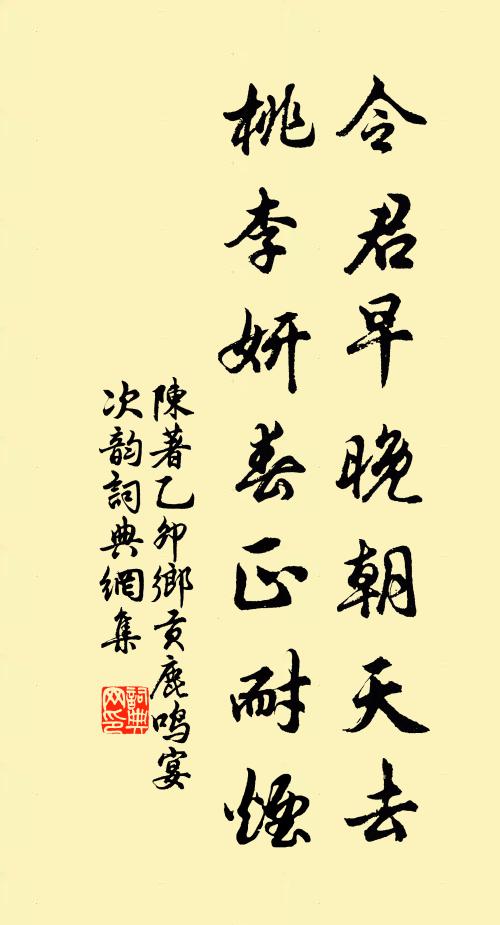 令君早晚朝天去
桃李妍春正耐煙
陳著乙卯鄉貢鹿鳴宴
次韵詞典網集
詞典
网印